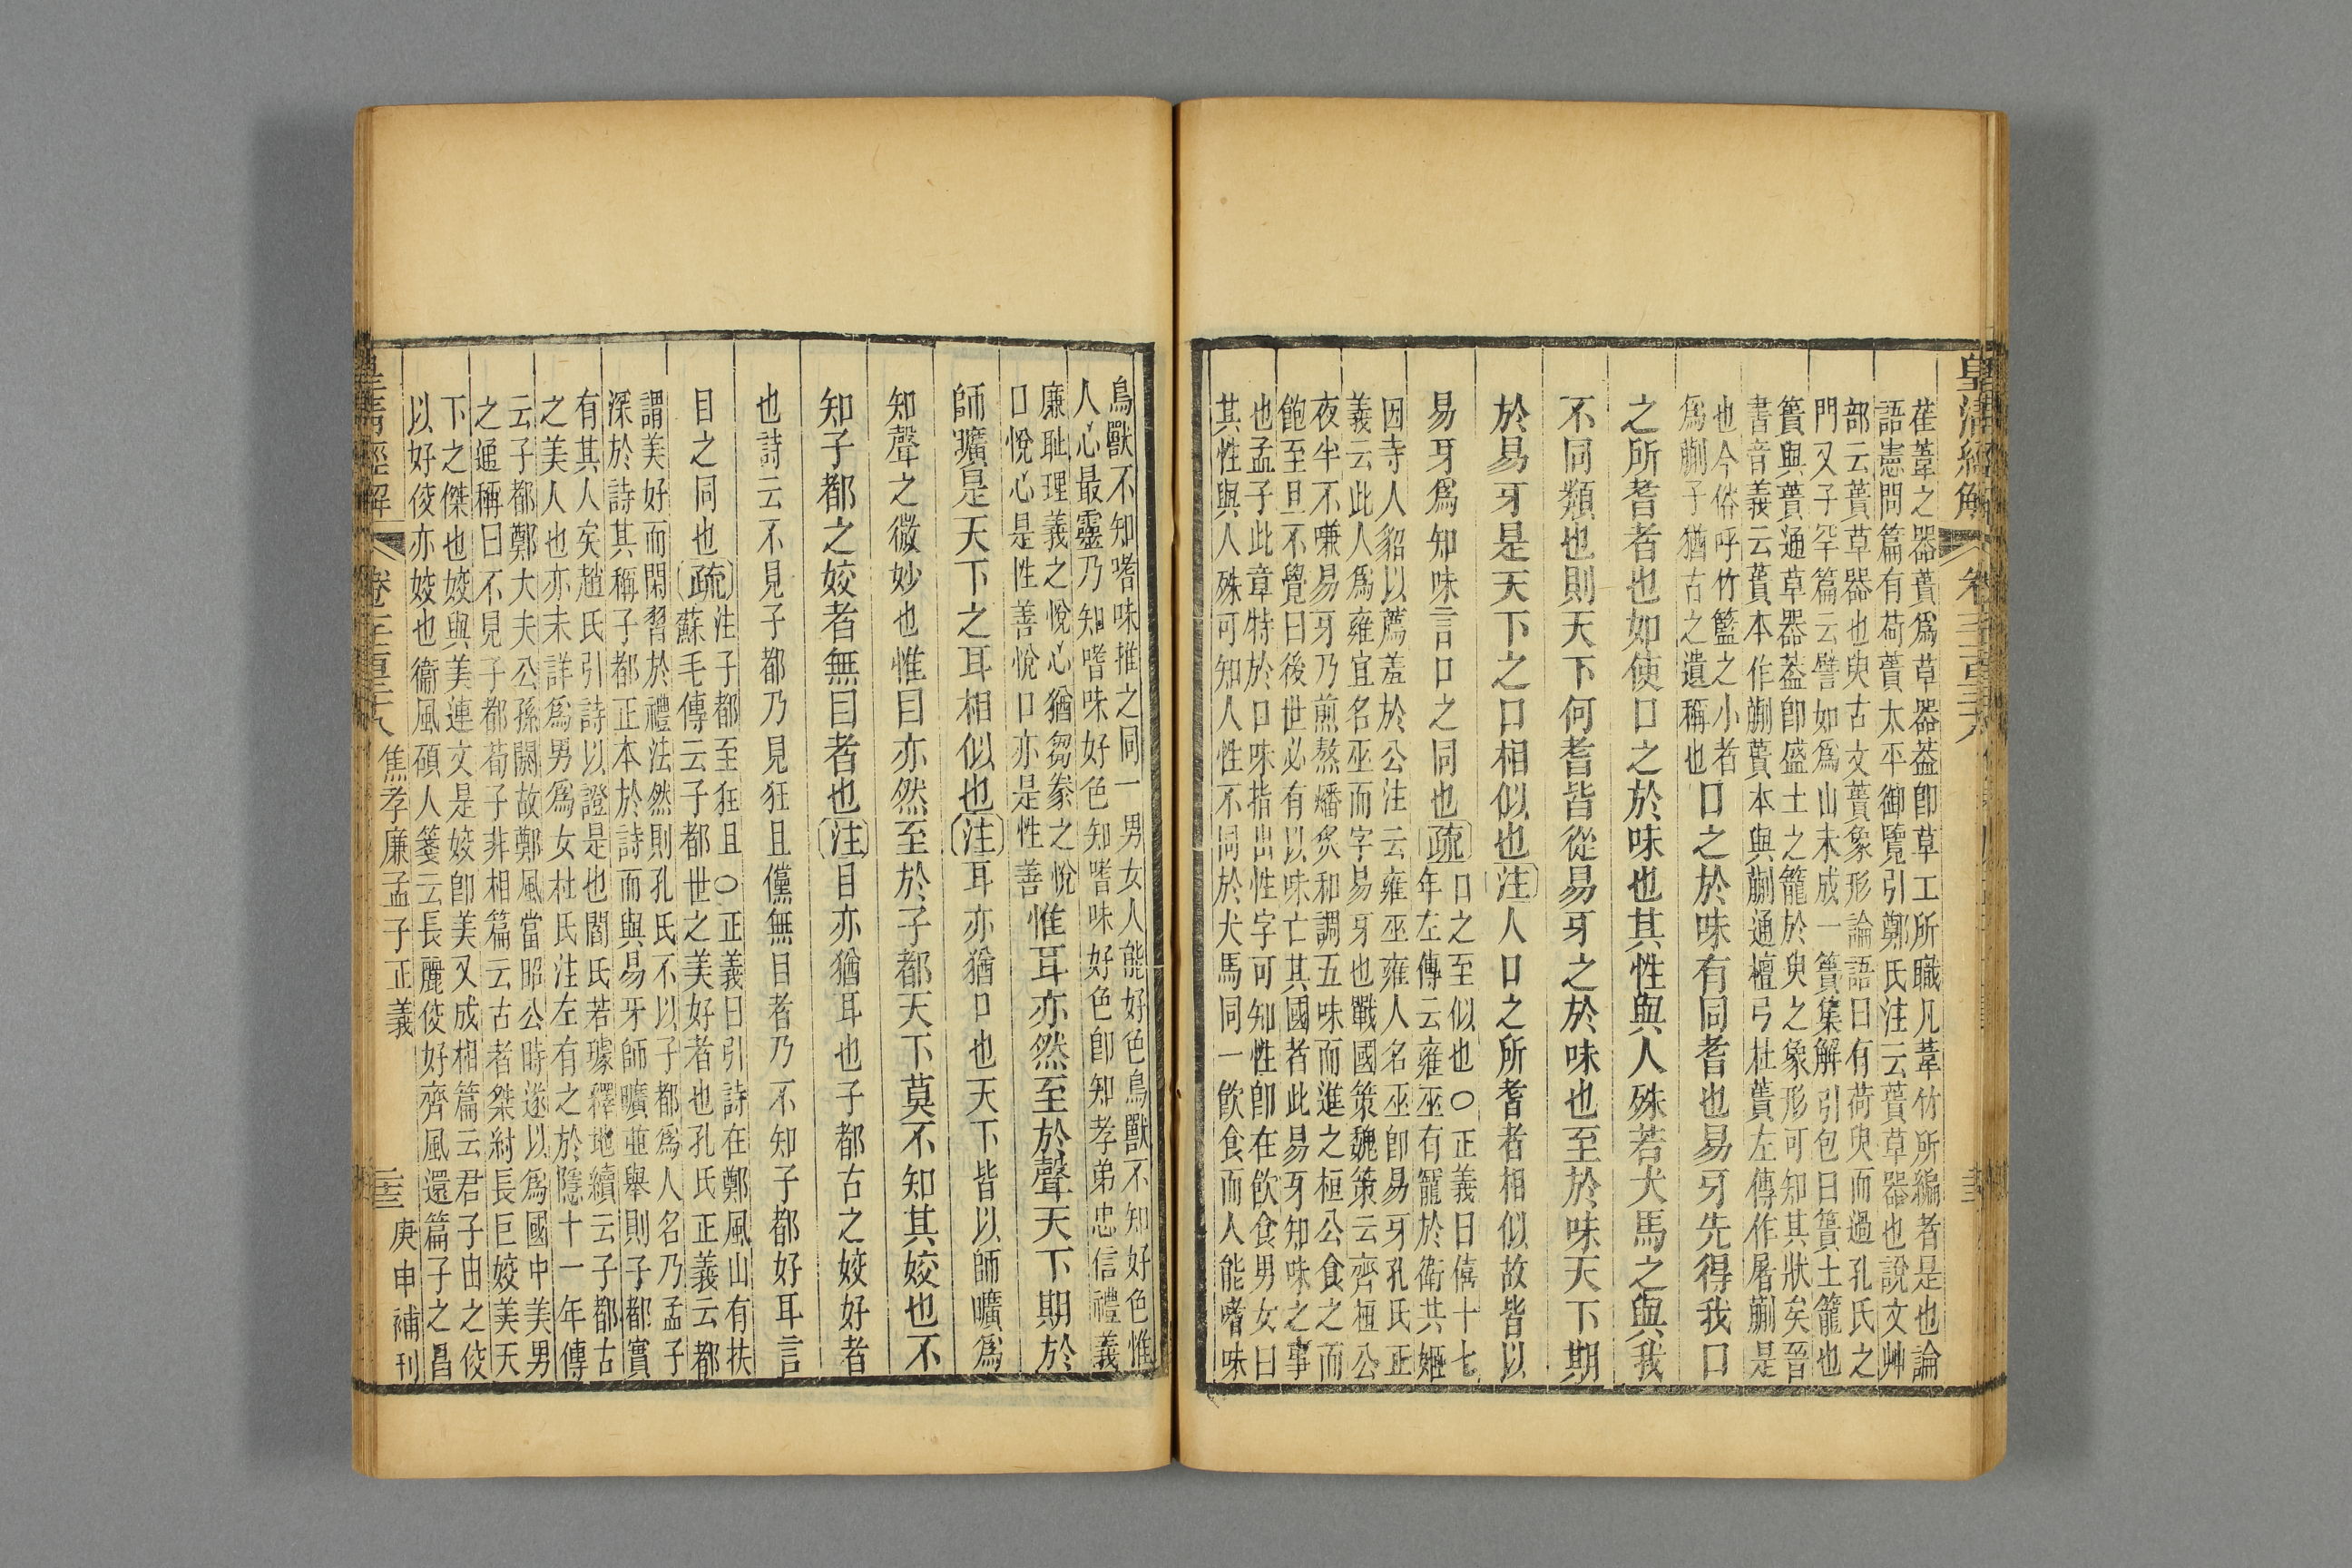 皇清經解
萑葦之器蕢爲草器葢卽草工所職凡葦竹所編者是也論
語憲問篇有荷蕢太平御覽引鄭氏注云蕢草器也說文艸
部云蕢草器也臾古文蕢象形論語曰有荷臾而過孔氏之
門又子罕篇云譬如爲山未成一簣集解引包曰簣土籠也
簣與蕢通草器葢卽盛土之籠於臾之象形可知其狀矣晉
書音義云蕢本作蒯蕢本與蒯通檀弓杜蕢左傳作屠蒯是
也今俗呼竹籃之小者
爲蒯子猶古之遺稱也
口之於味有同耆也易牙先得我口
之所耆者也如使口之於味也其性與人殊若犬馬之與我
不同類也則天下何耆皆從易牙之於味也至於味天下期
於易牙是天下之口相似也注人口之所耆者相似故皆以
易牙爲知味言口之同也疏
口之至似也○正義曰僖十七
年左傳云雍巫有寵於衛共姬
因寺人貂以薦羞於公注云雍巫雍人名巫卽易牙孔氏正
義云此人爲雍宜名巫而字易牙也戰國策魏策云齊桓公
夜半不嗛易牙乃煎熬燔炙和調五味而進之桓公食之而
飽至旦不覺曰後世必有以味亡其國者此易牙知味之事
也孟子此章特於口味指出性字可知性卽在飲食男女曰
其性與人殊可知人性不同於犬馬同一飲食而人能嗜味
鳥獸不知嗜味推之同一男女人能好色鳥獸不知好色惟
人心最靈乃知嗜味好色知嗜味好色卽知孝弟忠信禮義
廉恥理義之悅心猶芻豢之悅
口悅心是性善悅口亦是性善
惟耳亦然至於聲天下期於
師曠是天下之耳相似也注耳亦猶口也天下皆以師曠爲
知聲之微妙也惟目亦然至於子都天下莫不知其姣也不
知子都之姣者無目者也注目亦猶耳也子都古之姣好者
也詩云不見子都乃見狂且儻無目者乃不知子都好耳言
目之同也疏
注子都至狂且○正義曰引詩在鄭風山有扶
蘇毛傳云子都世之美好者也孔氏正義云都
謂美好而閑習於禮法然則孔氏不以子都爲人名乃孟子
深於詩其稱子都正本於詩而與易牙師曠並舉則子都實
有其人矣趙氏引詩以證是也閻氏若璩釋地續云子都古
之美人也亦未詳爲男爲女杜氏注左有之於隱十一年傳
云子都鄭大夫公孫閼故鄭風當昭公時遂以爲國中美男
之通稱曰不見子都荀子非相篇云古者桀紂長巨姣美天
下之傑也姣與美連文是姣卽美又成相篇云君子由之佼
以好佼亦姣也衞風碩人箋云長麗佼好齊風還篇子之昌
焦孝廉孟子正義
庚申補刊